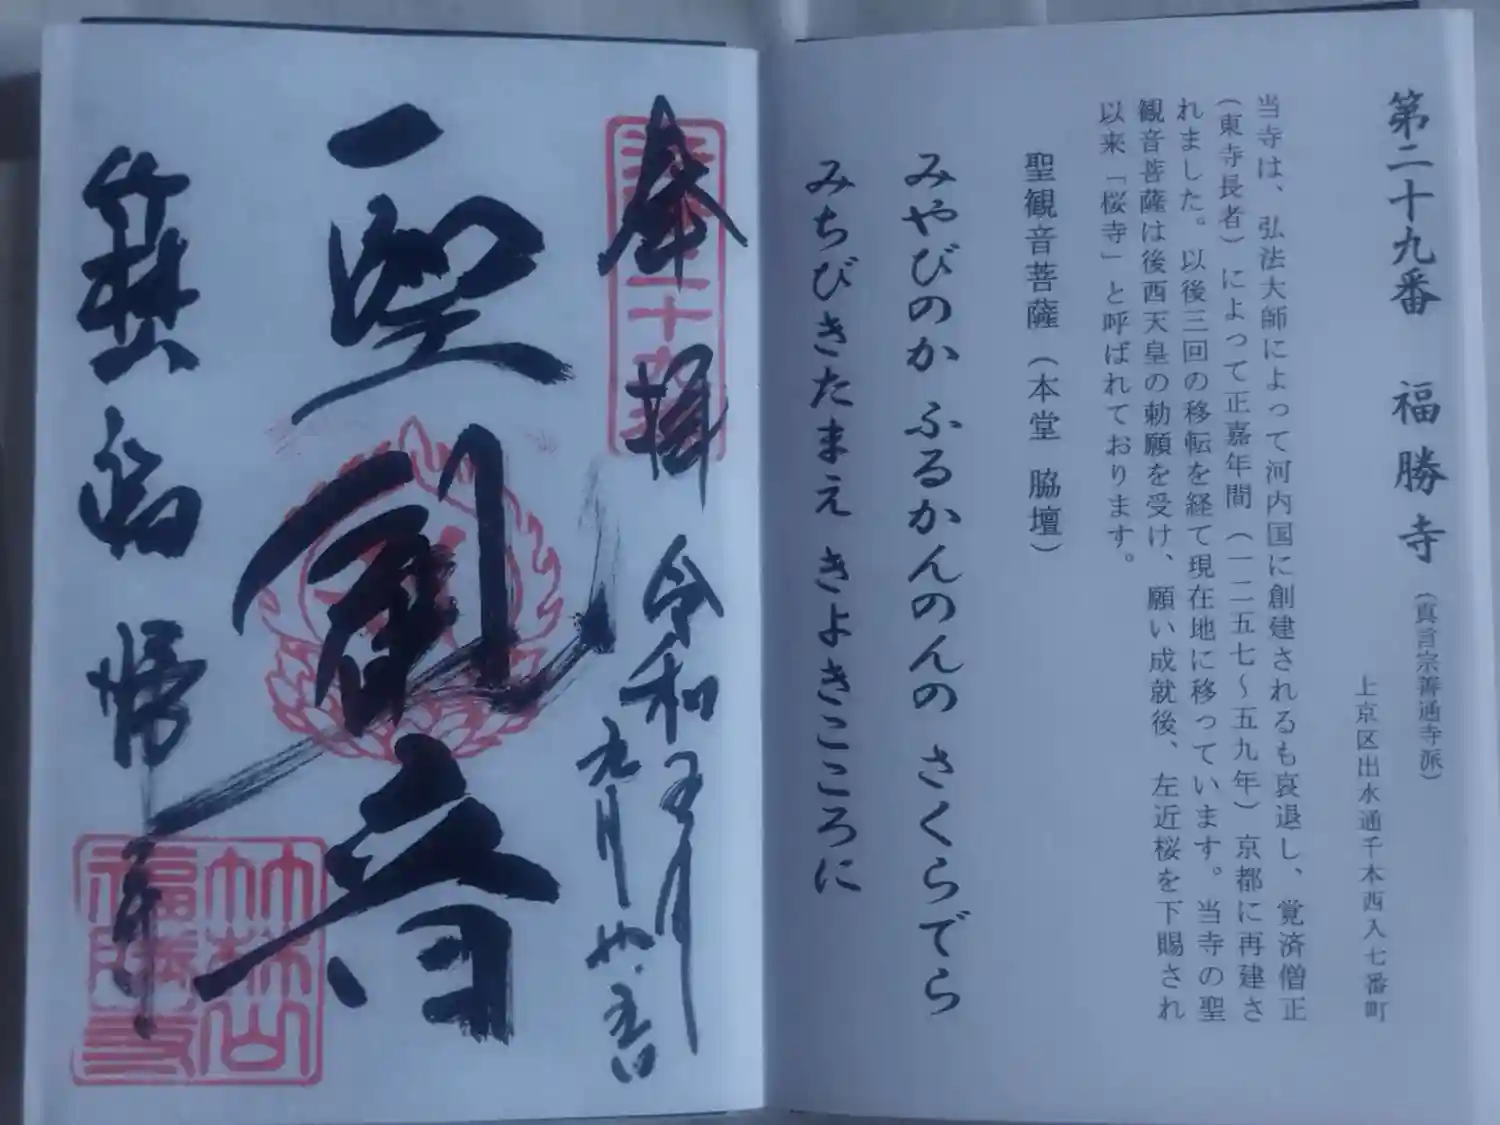 第二十九番 福勝寺 (真言宗善通寺派)
上京区出水通千本西入七番町
当寺は、弘法大師によって河内国に創建されるも衰退し、覚済僧正
(東寺長者)によって正嘉年間(一二五七〜五九年)京都に再建さ
れました。以後三回の移転を経て現在地に移っています。当寺の聖
観音菩薩は後西天皇の勅願を受け、願い成就後、左近桜を下賜され
以来「桜寺」と呼ばれております。
聖観音菩薩(本堂 脇壇)
みやびのか ふるかんのんの さくらでら
みちびきたまえ きよきこころに
奉拝
令和
九月
聖観音
竹林山
福勝寺